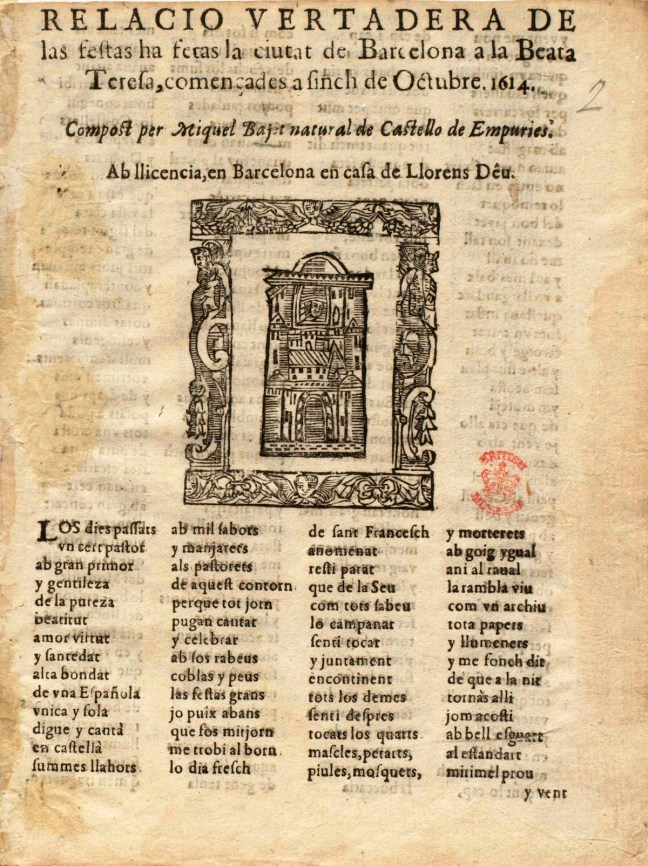 RELACIO VERTADERA DE
las festas ha fetas la ciutat de Barcelona a la Beata
Teresa, començades a sinch de Octubre. 1614.
2
Compost per Miquel natural de Castello de Empuries.
Ab llicencia, en Barcelona en casa de Llorens Dêu.
BRITISH
MUSEUM
LOS dies passats
vn cert pastor
ab gran primor
y gentileza
de la pureza
beatitut
amor virtut
y santedat
alta bondat
de vna Española
vnica y sola
digue y cantà
en castellà
summes llahors
ab mil sabors
y manjarets
als pastorets
de aquest contorn
perque tot jorn
pugan cantar
y celebrar
ab sos rabeus
coblas y peus
las festas grans
jo puix abans
que fos mitjorn
me trobi al born
lo dia fresch
de sant Francesch
anomenat
resti parat
que de la Seu
com tots sabeu
lo campanar
senti tocar
y juntament
encontinent
tots los demes
senti despres
tocats los quarts
mascles, petarts,
piules, mosquets,
y morterets
ab goig ygual
ani al raual
la rambla viu
com vn archiu
tota papers
y llumeners
y me fonch dit
de que a la nit
tornàs alli
jom acosti
ab bell esguart
al estandart
mirimel prou
y vent